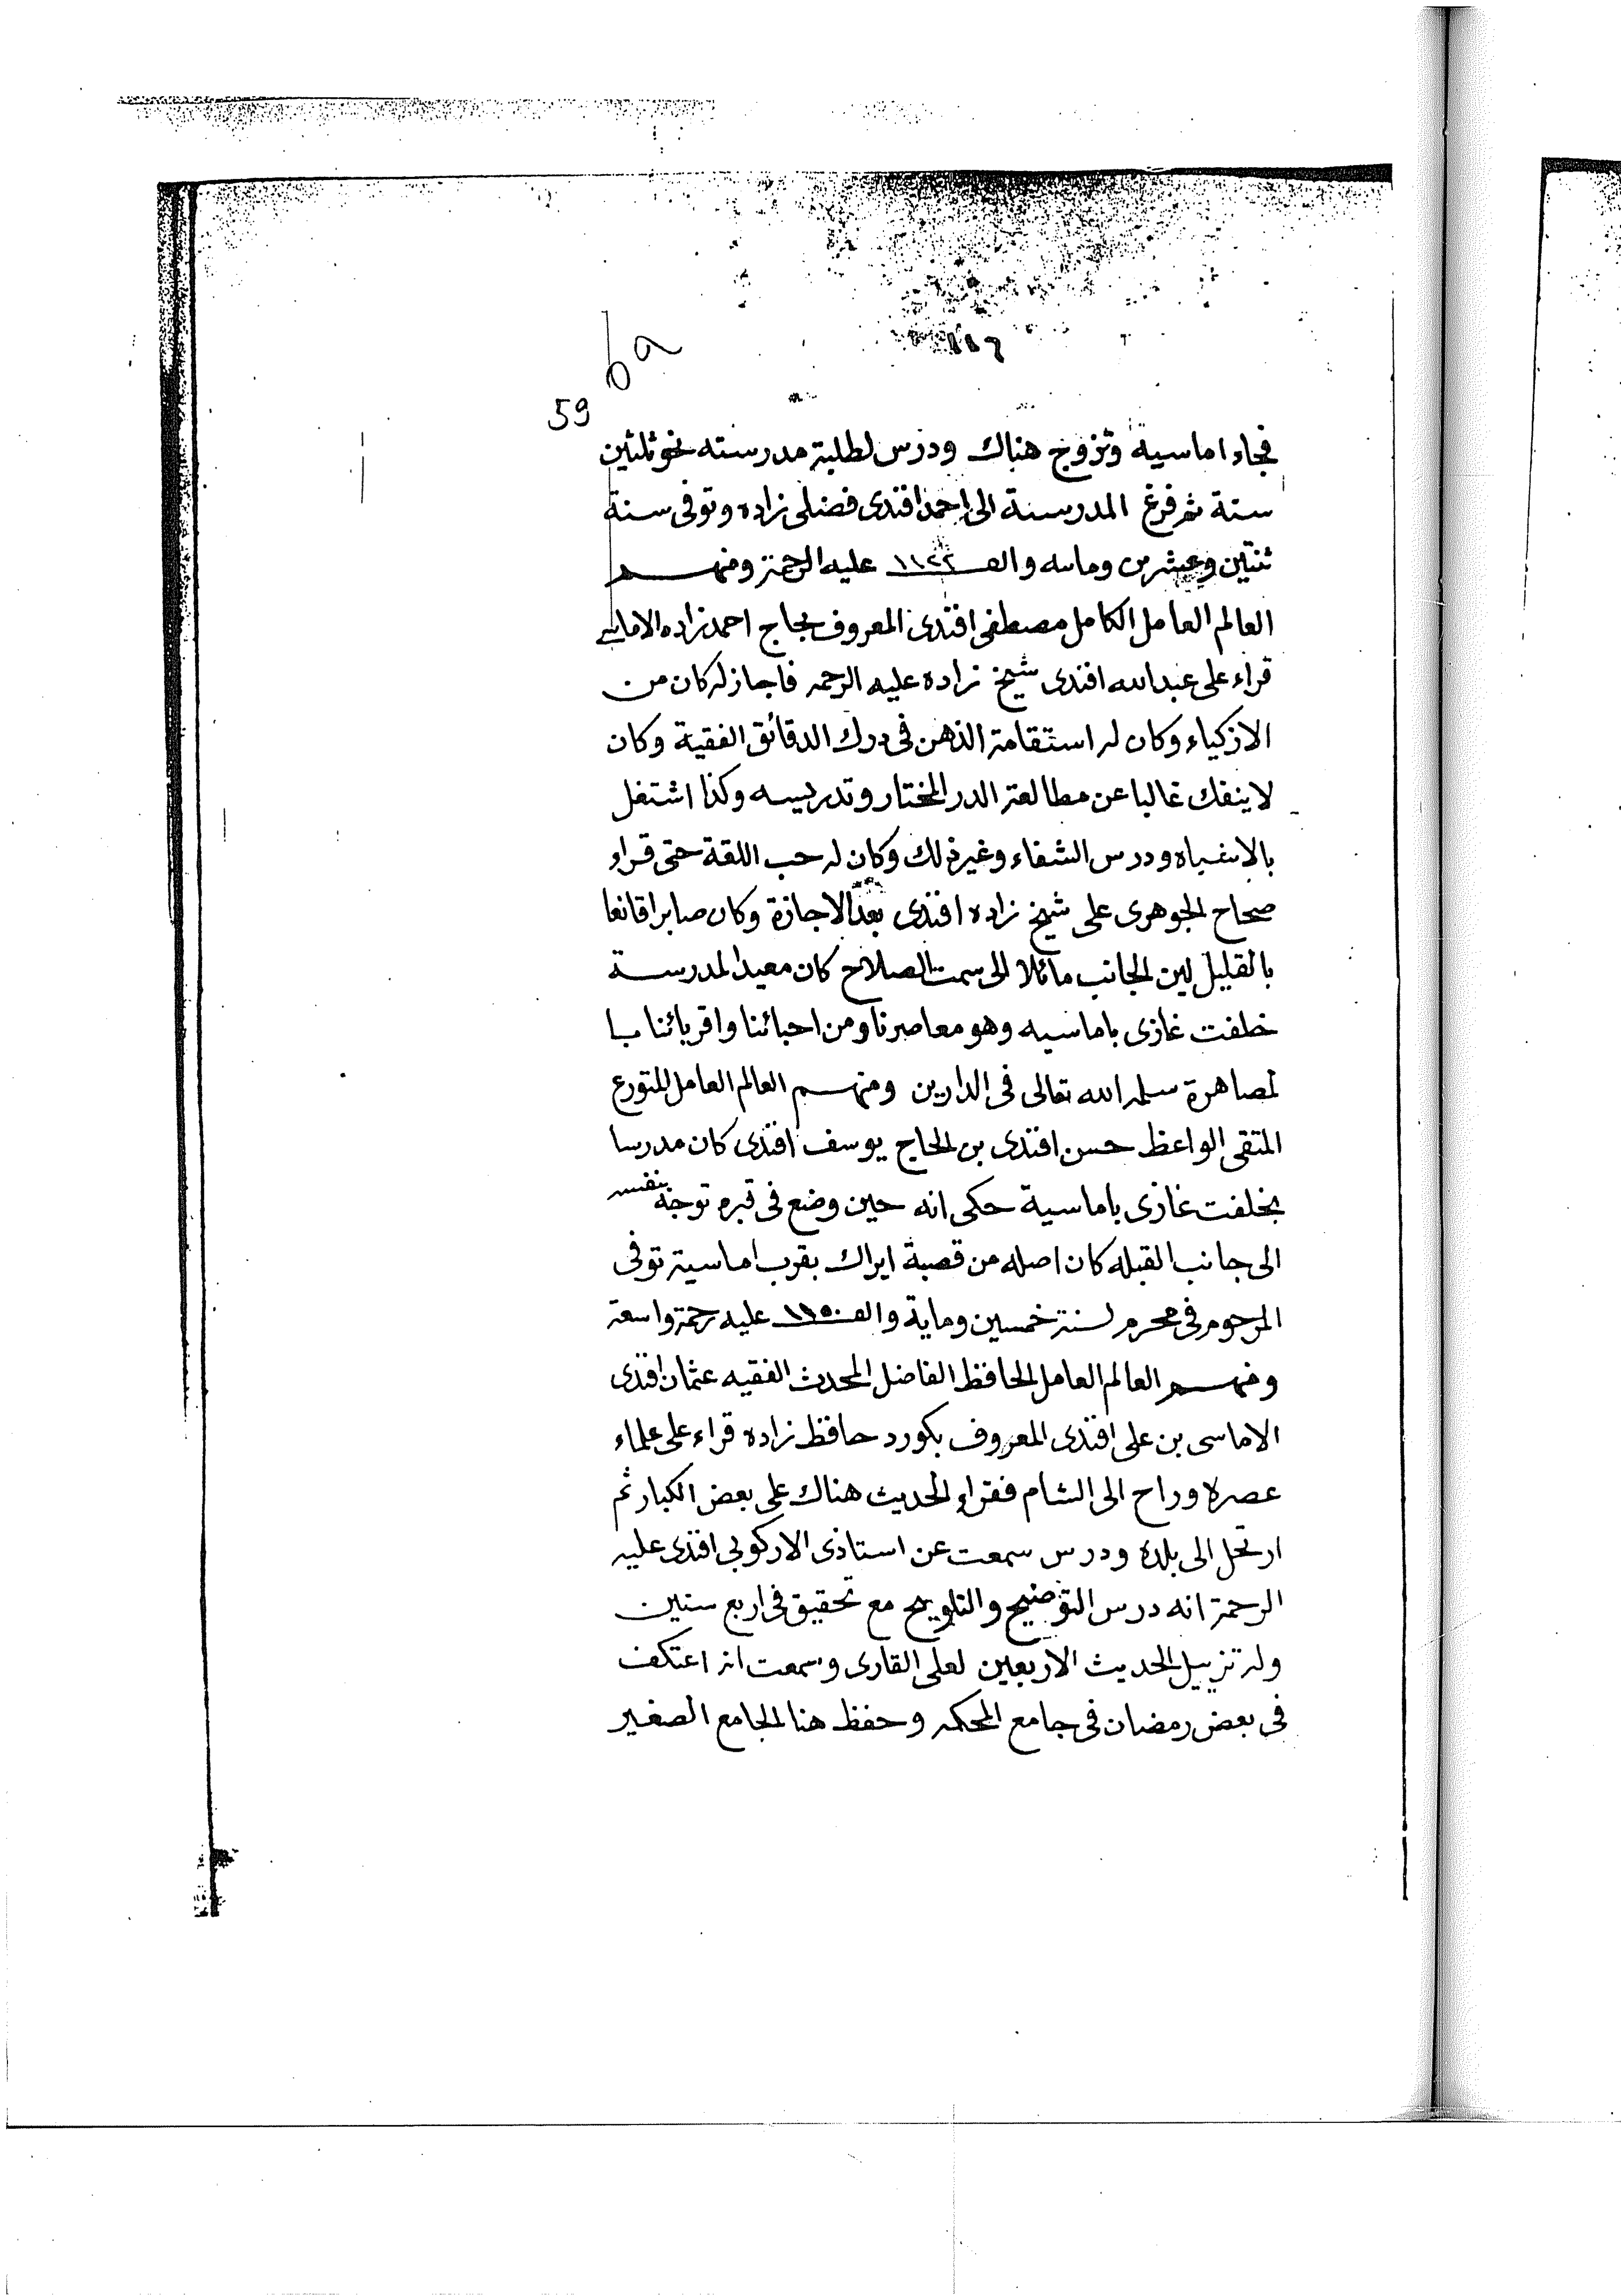 59
فجاء اماسية وتزوج هناك ودرس لطلبة مدرسته نحو ثلثين
سنة ثم فرغ المدرسة الى احمد افندى فضلى زاده وتوفى سنة
ثنتين وعشرين ومايه والف ١١٢٢ عليه الرحمة ومنهم
العالم العامل الكامل مصطفى افندى المعروف بحاج احمد زاده الاماسى
قراء على عبد الله افندى شيخ زاده عليه الرحمه فاجاز له كان من
الازكياء وكان له استقامة الذهن فى درك الدقائق الفقية وكان
لا ينفك غالبا عن مطالعة الدر المختار وتدريسه وكذا اشتغل
بالاشباه ودرس الشفاء وغير ذلك وكان له حب اللقة حتى قراء
صحاح الجوهرى على شيخ زاده افندى بعد الاجازة وكان صابرا قانعا
بالقليل لين الجانب مائلا الى سمت الصلاح كان معيدا لمدرسة
خلفت غازى باماسيه وهو معاصرنا ومن احبائنا واقربائنا با
لمصاهرة سلمه الله تعالى فى الدارين ومنهم العالم العامل المتورع
المتقى الواعظ حسن افندى بن الحاج يوسف افندى كان مدرسا
بخلفت غازى باماسية حكى انه حين وضع فى قبره توجه بنفسه
الى جانب القبله كان اصله من قصبة ايراك بقرب اماسية توفى
المرحوم فى محرم لسنة خمسين وماية والف ١١٥٠ عليه رحمة واسعة
ومنهم العالم العامل الحافظ الفاضل المحدث الفقيه عثمان افندى
الاماسى بن على افندى المعروف بكورد حافظ زاده قراء على علماء
عصره وراح الى الشام فقراء الحديث هناك على بعض الكبار ثم
ارتحل الى بلده ودرس سمعت عن استاذى الاركوبى افندى عليه
الرحمة انه درس التوضيح والتلويح مع تحقيق فى اربع سنين
وله تزييل الحديث الاربعين لعلى القارى وسمعت انه اعتكف
فى بعض رمضان فى جامع المحكمه وحفظ هنا الجامع الصغير